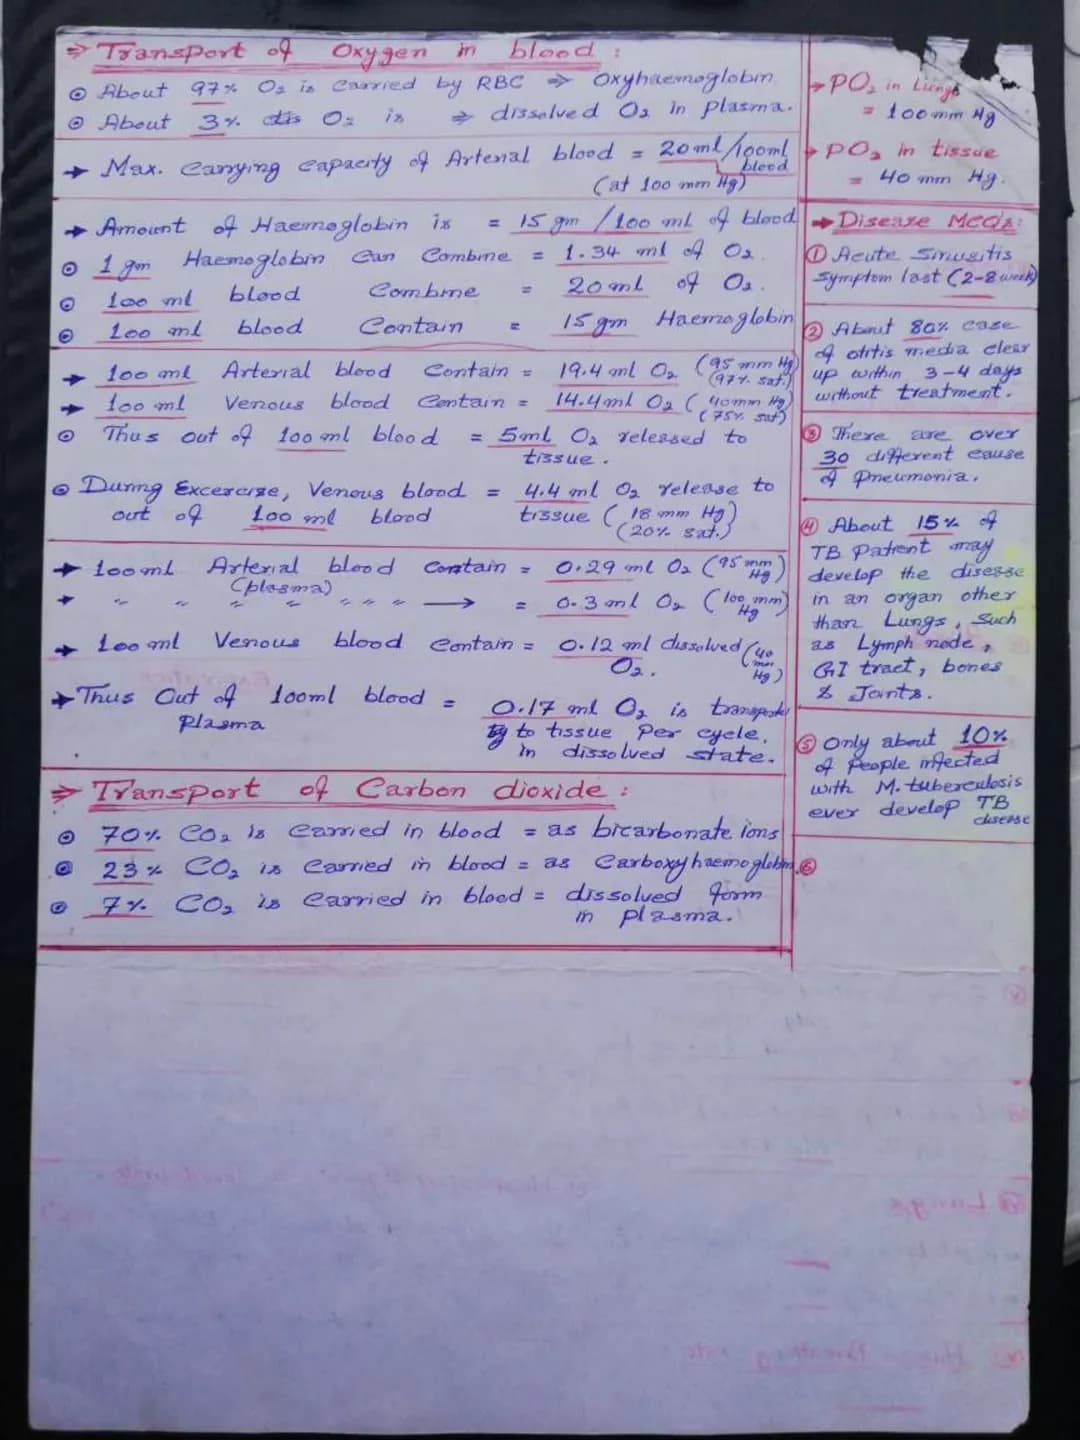 ⇒ Transport of Oxygen in blood :
⊙ About 97% O₂ is carried by RBC ⇒ Oxyhaemoglobin
⊙ About 3% O₂ is ⇒ dissolved O₂ in plasma.
→ Max. carrying capacity of Arterial blood = 20 ml/100ml blood
(at 100 mm Hg)
→ Amount of Haemoglobin is = 15 gm /100 ml of blood
⊙ 1 gm Haemoglobin Can Combine = 1.34 ml of O₂.
⊙ 100 ml blood Combine = 20 ml of O₂.
⊙ 100 ml blood Contain = 15 gm Haemoglobin
→ 100 ml Arterial blood Contain = 19.4 ml O₂ (95 mm Hg)
(97% sat.)
→ 100 ml Venous blood Contain = 14.4 ml O₂ (40mm Hg)
(75% sat)
⊙ Thus out of 100 ml blood = 5ml O₂ released to
tissue.
⊙ During Excercise, Venous blood = 4.4 ml O₂ release to
out of 100 ml blood tissue (18 mm Hg)
(20% sat.)
→ 100ml Arterial blood Contain = 0.29 ml O₂ (95 mm Hg)
(plasma)
→ " " " " " " " ⟶ = 0.3 ml O₂ (100 mm Hg)
→ 100 ml Venous blood Contain = 0.12 ml dissolved (40 mm Hg)
O₂.
→ Thus Out of 100ml blood = 0.17 ml O₂ is
Plasma to tissue Per cycle.
in dissolved state.
⇒ Transport of Carbon dioxide :
⊙ 70% CO₂ is Carried in blood = as bicarbonate ions
⊙ 23% CO₂ is Carried in blood = as Carboxyhaemoglobin
⊙ 7% CO₂ is Carried in blood = dissolved form
in plasma.
→ PO₂ in Lungs
= 100 mm Hg
→ PO₂ in tissue
= 40 mm Hg.
→ Disease MCQ's:
① Acute Sinusitis
Symptom last (2-8 week)
② About 80% case
of otitis media clear
up within 3-4 days
without treatment.
③ There are over
30 different cause
of Pneumonia.
④ About 15% of
TB Patient may
develop the disease
in an organ other
than Lungs, Such
as Lymph node,
GI tract, bones
& Joints.
⑤ Only about 10%
of People infected
with M. tuberculosis
ever develop TB
disease
⑥